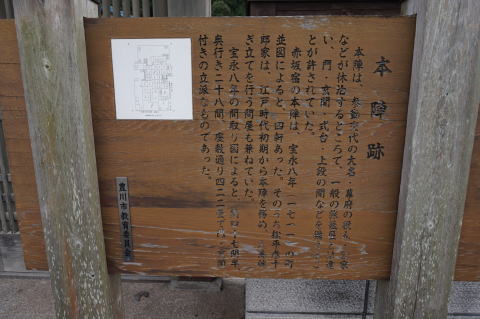 本陣跡
本陣は、参勤交代の大名、幕府の役人、公家
などが休泊するところで、一般の旅籠屋と
い、門・玄関・式台・上段の間などを設けるこ
とが許されていた。
赤坂宿の本陣は、宝永八年(一七一一)の町
並図によると、四軒あった。そのうち松平彦十
郎家は、江戸時代初期から本陣を務め、
ぎ立てを行う問屋も兼ねていた。
宝永八年の間取り図によると、間口十七間半、
奥行き二十八間、座敷通り四二二畳で門・玄関
付きの立派なものであった。
豊川市教育委員会